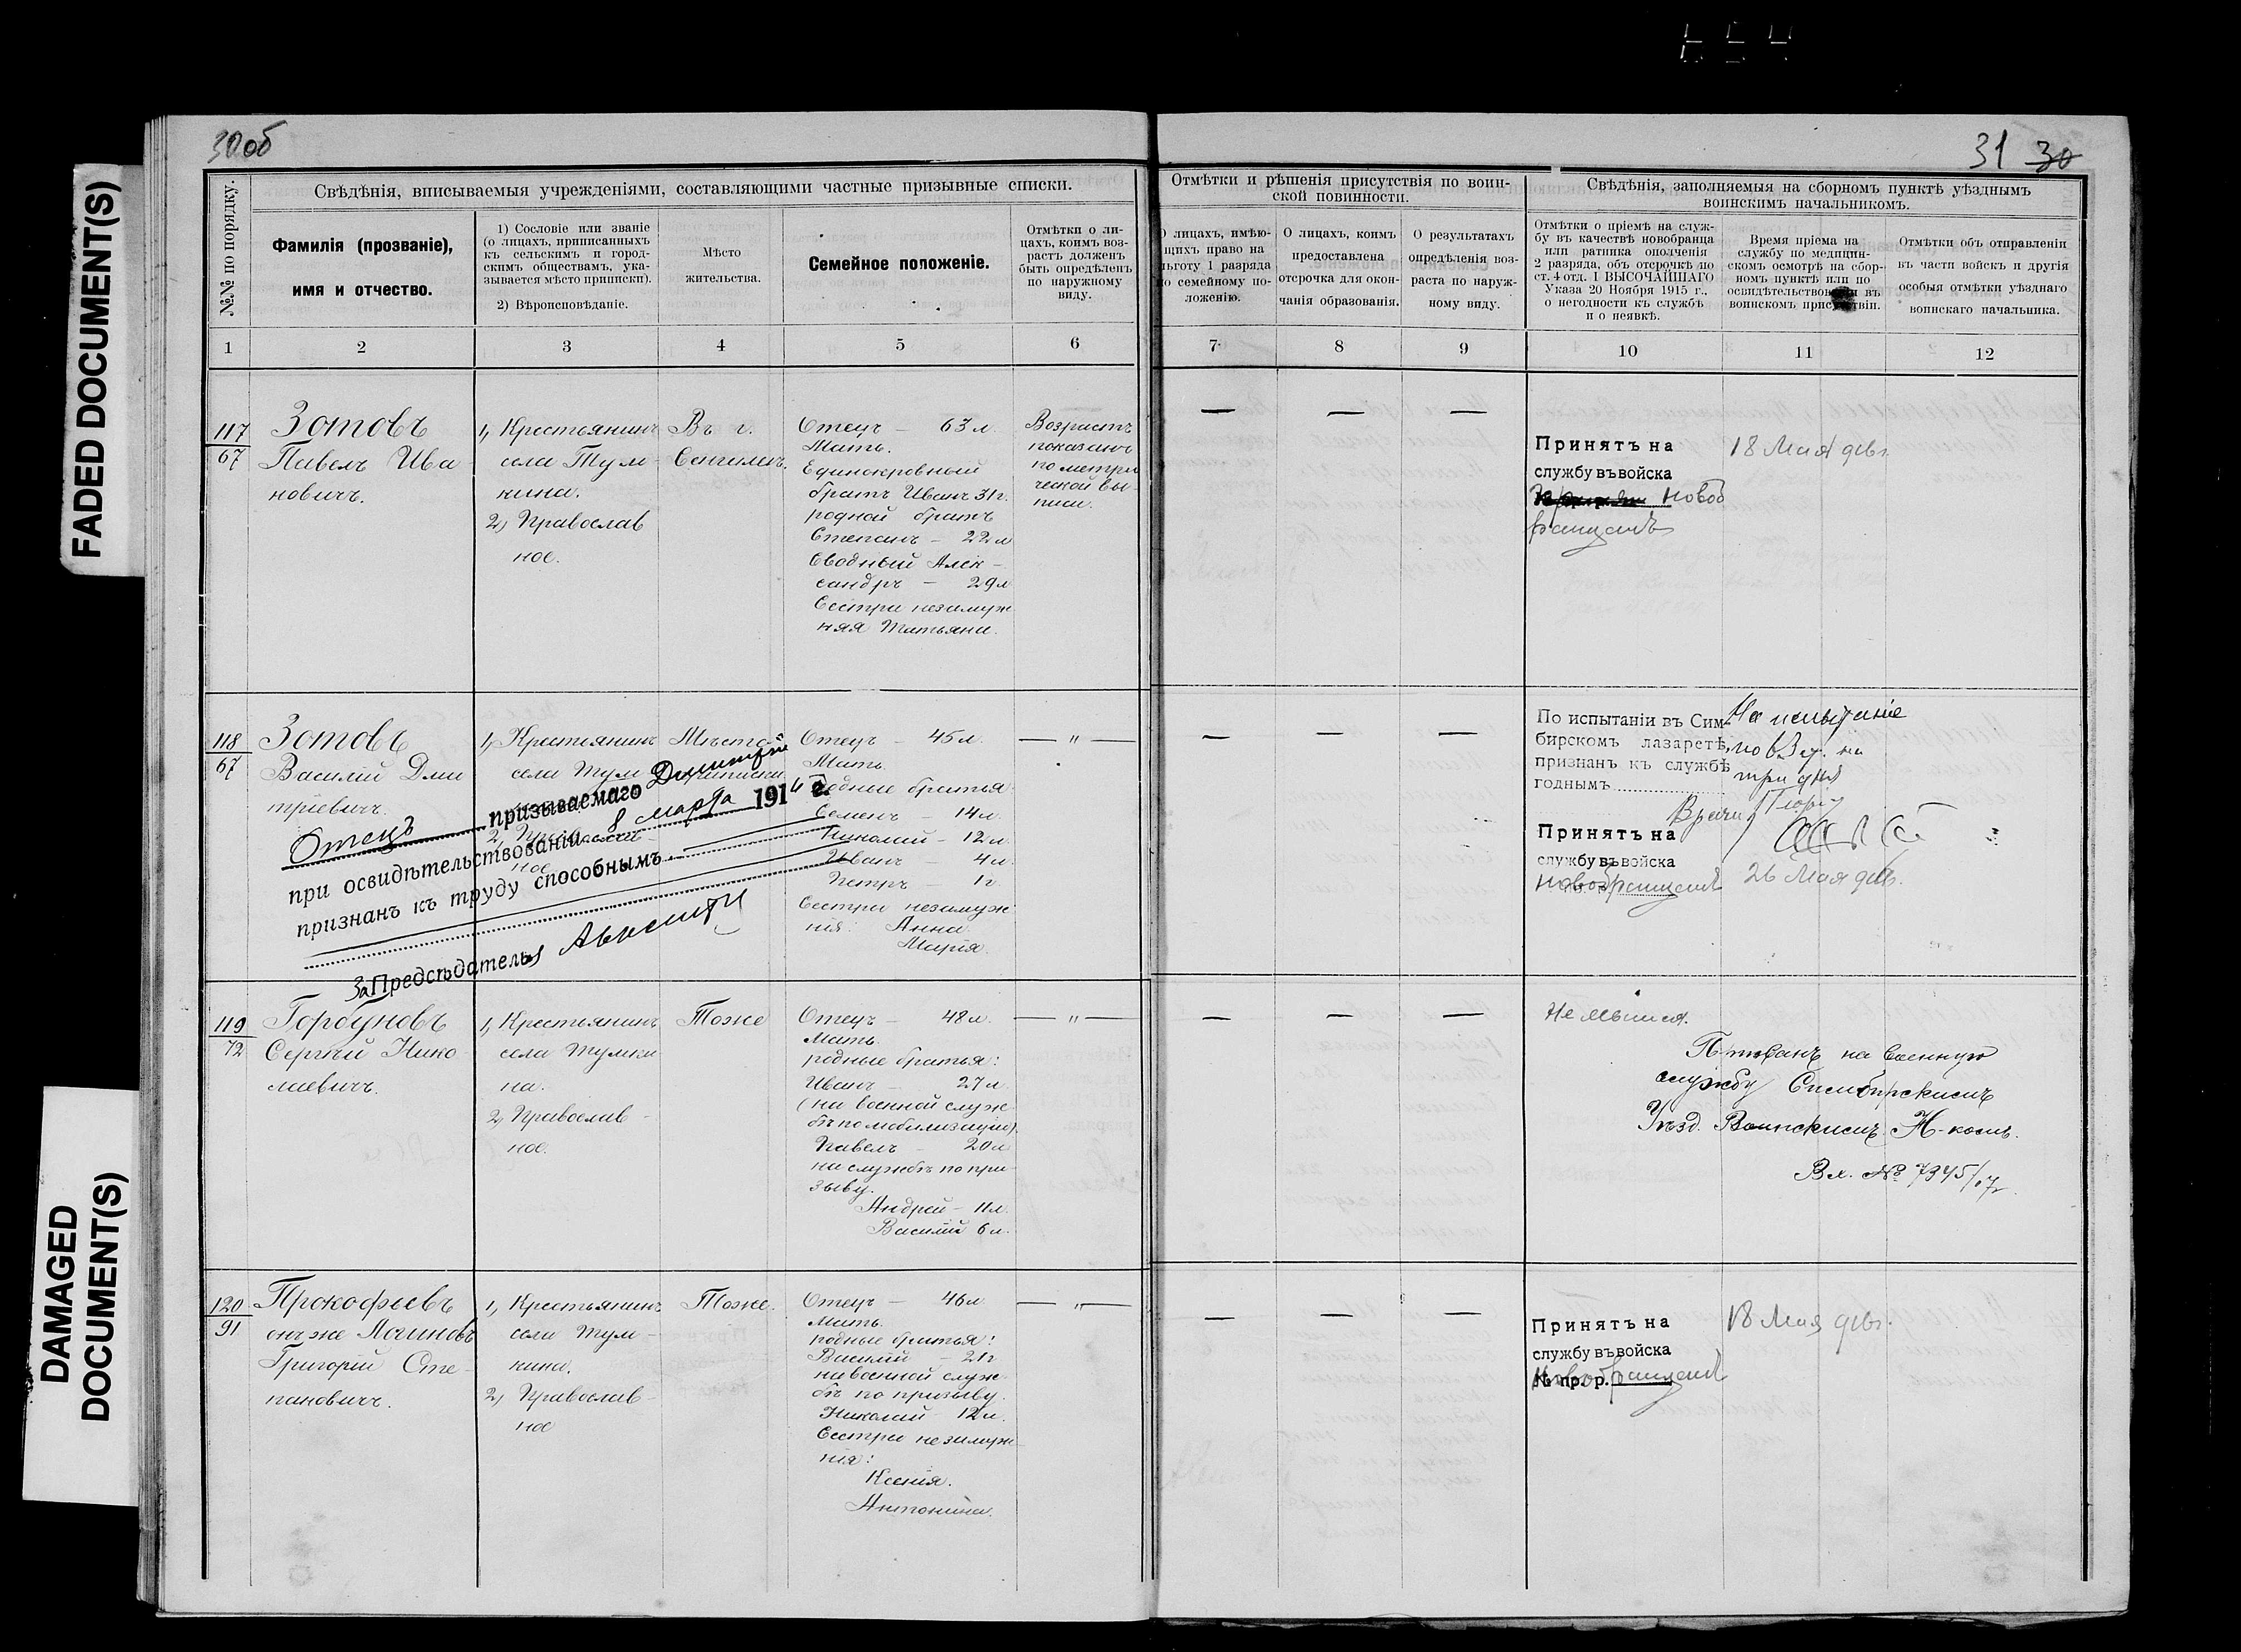 FADED DOCUMENT(S)
DAMAGED
DOCUMENT(S)
30об
31 30
№№ по порядку.
Свѣдѣнія, вписываемыя учрежденіями, составляющими частные призывные списки.
Фамилія (прозваніе),
имя и отчество.
1) Сословіе или званіе
(о лицахъ, приписанныхъ
къ сельскимъ и город-
скимъ обществамъ, ука-
зывается мѣсто приписки).
2) Вѣроисповѣданіе.
Мѣсто
жительства.
Семейное положеніе.
Отмѣтки о ли-
цахъ, коимъ воз-
растъ долженъ
быть опредѣленъ
по наружному
виду.
Отмѣтки и рѣшенія присутствія по воин-
ской повинности.
О лицахъ, имѣю-
щихъ право на
льготу 1 разряда
по семейному по-
ложенію.
О лицахъ, коимъ
предоставлена
отсрочка для окон-
чанія образованія.
О результатахъ
опредѣленія воз-
раста по наруж-
ному виду.
Свѣдѣнія, заполняемыя на сборномъ пунктѣ уѣзднымъ
воинскимъ начальникомъ.
Отмѣтки о пріемѣ на служ-
бу въ качествѣ новобранца
или ратника ополченія
2 разряда, объ отсрочкѣ по
ст. 4 отд. I ВЫСОЧАЙШАГО
Указа 20 Ноября 1915 г.,
о негодности къ службѣ
и о неявкѣ.
Время пріема на
службу по медицин-
скомъ осмотрѣ на сбор-
номъ пунктѣ или по
освидѣтельствованіи въ
воинскомъ присутствіи.
Отмѣтки объ отправленіи
въ части войскъ и другія
особыя отмѣтки уѣзднаго
воинскаго начальника.
1 2 3 4 5 6 7 8 9 10 11 12
117
67
Зотовъ
Павелъ Ива
новичъ.
1, Крестьянинъ
села Тум-
кина.
2, Православ
ное.
Въ г.
Сенгилеѣ.
Отецъ — 63 л.
Мать.
Единокровный
братъ Иванъ 31 г.
родной братъ
Степанъ — 22 л
Сводный Алек-
сандръ — 29 л
Сестра незамуж
няя Татьяна.
Возрастъ
показанъ
по метри
ческой вы-
писи.
— — —
Принятъ на
службу въ войска
новоб
ранцемъ
18 Мая 916 г.
118
67
Зотовъ
Василій Дми
тріевичъ.
1, Крестьянинъ
села Тум
2, Православ-
ное
Мѣсто
приписки
Отецъ — 45 л.
Мать.
родные братья
Семенъ — 14 л.
Николай — 12 л.
Иванъ — 4 л.
Петръ — 1 г.
Сестры незамуж
нія: Анна
Марія.
— " —
— — —
Отецъ призываемаго Димитрій
при освидѣтельствованіи 8 марта 1916 г.
признанъ къ труду способнымъ
За Предсѣдателя
По испытаніи въ Сим-
бирскомъ лазаретѣ,
признанъ къ службѣ
годнымъ
Врачъ
На испытаніе
три дня
Принятъ на
службу въ войска
новобранцемъ
26 Мая 916.
119
72
Горбуновъ
Сергѣй Нико-
лаевичъ.
1, Крестьянинъ
села Тумки
на.
2, Православ-
ное.
Тоже
Отецъ — 48 л.
Мать.
родные братья:
Иванъ — 27 л
(на военной служ
бѣ по мобилизаціи).
Павелъ — 20 л
на службѣ по при
зыву.
Андрей — 11 л.
Василій 6 л.
— " —
— — —
Не явился.
Призванъ на военную
службу Симбирскимъ
Уѣзд. Воинскимъ Н-комъ.
Вх. № 7345/17 г.
120
91
Прокофьевъ
онъ же Логиновъ
Григорій Сте-
пановичъ.
1, Крестьянинъ
села Тум-
кина.
2, Православ-
ное
Тоже.
Отецъ — 46 л
Мать.
родные братья:
Василій — 21 г
на военной служ
бѣ по призыву.
Николай — 12 л.
Сестры незамуж
нія:
Ксенія.
Антонина.
— " —
— — —
Принятъ на
службу въ войска
Новобранцемъ
18 Мая 916 г.